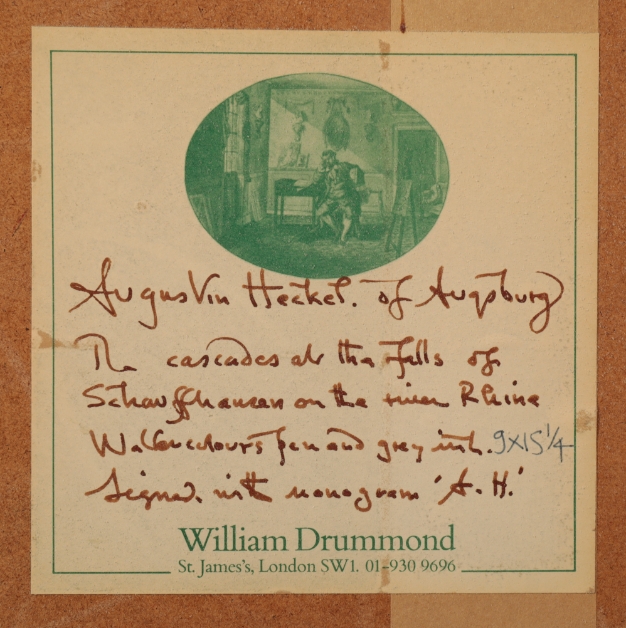 Augustin Heckel. of Augsburg
The cascades at the Falls of
Schauffhausen on the river Rhine
Watercolours pen and grey ink. 9x15 1/4
Signed. with monogram 'A. H.'
William Drummond
St. James's, London SW1. 01-930 9696